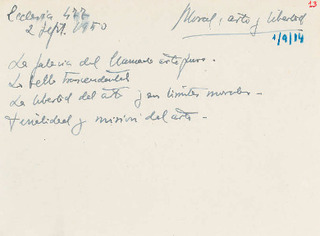 13
Ecclesia 477
2 Sept. 1950
Moral, arte y libertad
1/9/14
La falacia del llamado arte puro.
Lo bello trascendental
La libertad del arte y sus límites morales -
Finalidad y misión del arte -